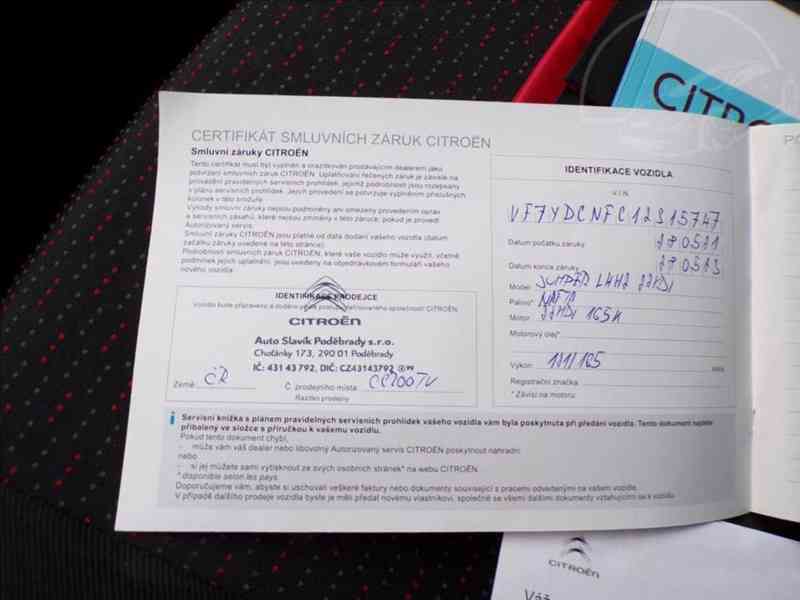 CITRO
CERTIFIKÁT SMLUVNÍCH ZÁRUK CITROËN
Smluvní záruky CITROËN
Tento certifikát musí být vyplněn a orazítkován prodávajícím dealerem jako
potvrzení smluvních záruk CITROËN. Uplatňování řečených záruk je závislé na
provádění pravidelných servisních prohlídek, jejichž podrobnosti jsou rozepsány
v plánu servisních prohlídek. Jejich provedení se potvrzuje vyplněním příslušných
kolonek v této brožuře.
Výhody smluvní záruky nejsou podmíněny ani omezeny provedením oprav
a servisních zásahů, které nejsou zmíněny v této záruce, pokud je provedl
Autorizovaný servis.
Smluvní záruky CITROËN jsou platné od data dodání vašeho vozidla (datum
začátku záruky uvedené na této straně).
Podrobnosti smluvních záruk CITROËN, které vaše vozidlo může využít, včetně
podmínek jejich uplatnění, jsou uvedeny na objednávkovém formuláři vašeho
nového vozidla.
IDENTIFIKACE PRODEJCE
Vozidlo bylo připraveno a dodáno
společností CITROËN
CITROËN
Auto Slavík Poděbrady s.r.o.
Choťánky 173, 290 01 Poděbrady
IČ: 431 43 792, DIČ: CZ43143792
Země: ČR
Č. prodejního místa
Razítko prodejny
IDENTIFIKACE VOZIDLA
V.I.N.
VF7YDCNFC12S15747
Datum počátku záruky 270521
Datum konce záruky 270523
Model JUMPER L4H2 22HDI
Palivo* NAFTA
Motor 22HDI 165K
Motorový olej*
Výkon 121/165
Registrační značka
* Závisí na motoru
i Servisní knížka s plánem pravidelných servisních prohlídek vašeho vozidla vám byla poskytnuta při předání vozidla. Tento dokument najdete
přibalený ve složce s příručkou k vašemu vozidlu.
Pokud tento dokument chybí,
- může vám váš dealer nebo libovolný Autorizovaný servis CITROËN poskytnout náhradní
nebo
- si jej můžete sami vytisknout ze svých osobních stránek* na webu CITROËN.
* disponible selon les pays
Doporučujeme vám, abyste si uschovali veškeré faktury nebo dokumenty související s pracemi odvedenými na vašem vozidle.
V případě dalšího prodeje vozidla byste je měli předat novému vlastníkovi, společně se všemi dalšími dokumenty vztahujícími se k vozidlu.
CITROËN
Váš